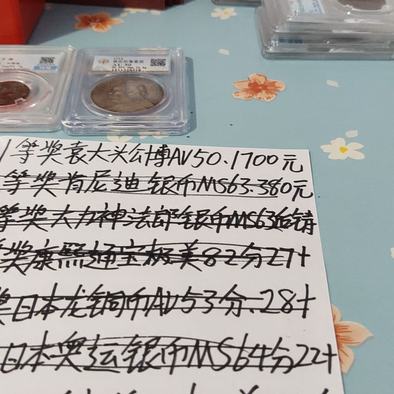 AU 50
1等奖袁大头公博AV50.1700元
等奖肯尼迪银币MS63.380元
等奖大力神法郎银币MS63后铸
奖康熙通宝极美82分27十
奖日本龙铜币AV53分.28十
日本奥运银币MS64分22十